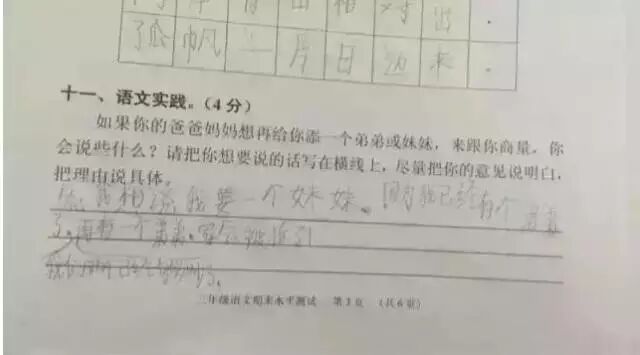 两 岸 青 山 相 对 出 .
孤 帆 一 片 日 边 来 .
十一、语文实践。(4分)
如果你的爸爸妈妈想再给你添一个弟弟或妹妹，来跟你商量，你
会说些什么？请把你想要说的话写在横线上，尽量把你的意见说明白，
把理由说具体。
我想 我要一个妹妹。因为我已经有个弟弟
了，再有一个弟弟，
二年级语文期末水平测试 第3页 (共6页)